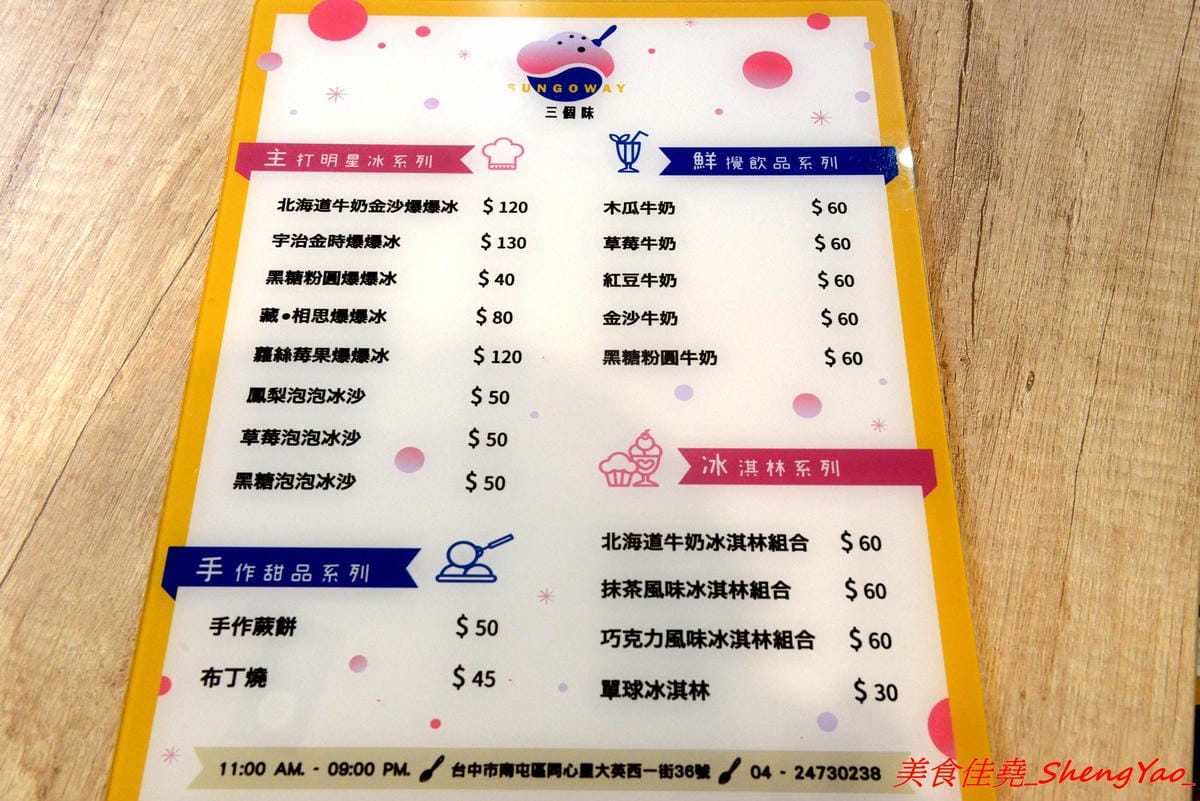 SUNGOWAY
三個味
主打明星冰系列
北海道牛奶金沙爆爆冰 $120
宇治金時爆爆冰 $130
黑糖粉圓爆爆冰 $40
藏•相思爆爆冰 $80
蘿絲莓果爆爆冰 $120
鳳梨泡泡冰沙 $50
草莓泡泡冰沙 $50
黑糖泡泡冰沙 $50
手作甜品系列
手作蕨餅 $50
布丁燒 $45
鮮攪飲品系列
木瓜牛奶 $60
草莓牛奶 $60
紅豆牛奶 $60
金沙牛奶 $60
黑糖粉圓牛奶 $60
冰淇林系列
北海道牛奶冰淇林組合 $60
抹茶風味冰淇林組合 $60
巧克力風味冰淇林組合 $60
單球冰淇林 $30
11:00 AM. - 09:00 PM. 台中市南屯區同心里大英西一街36號 04 - 24730238
美食佳堯_ShengYao_